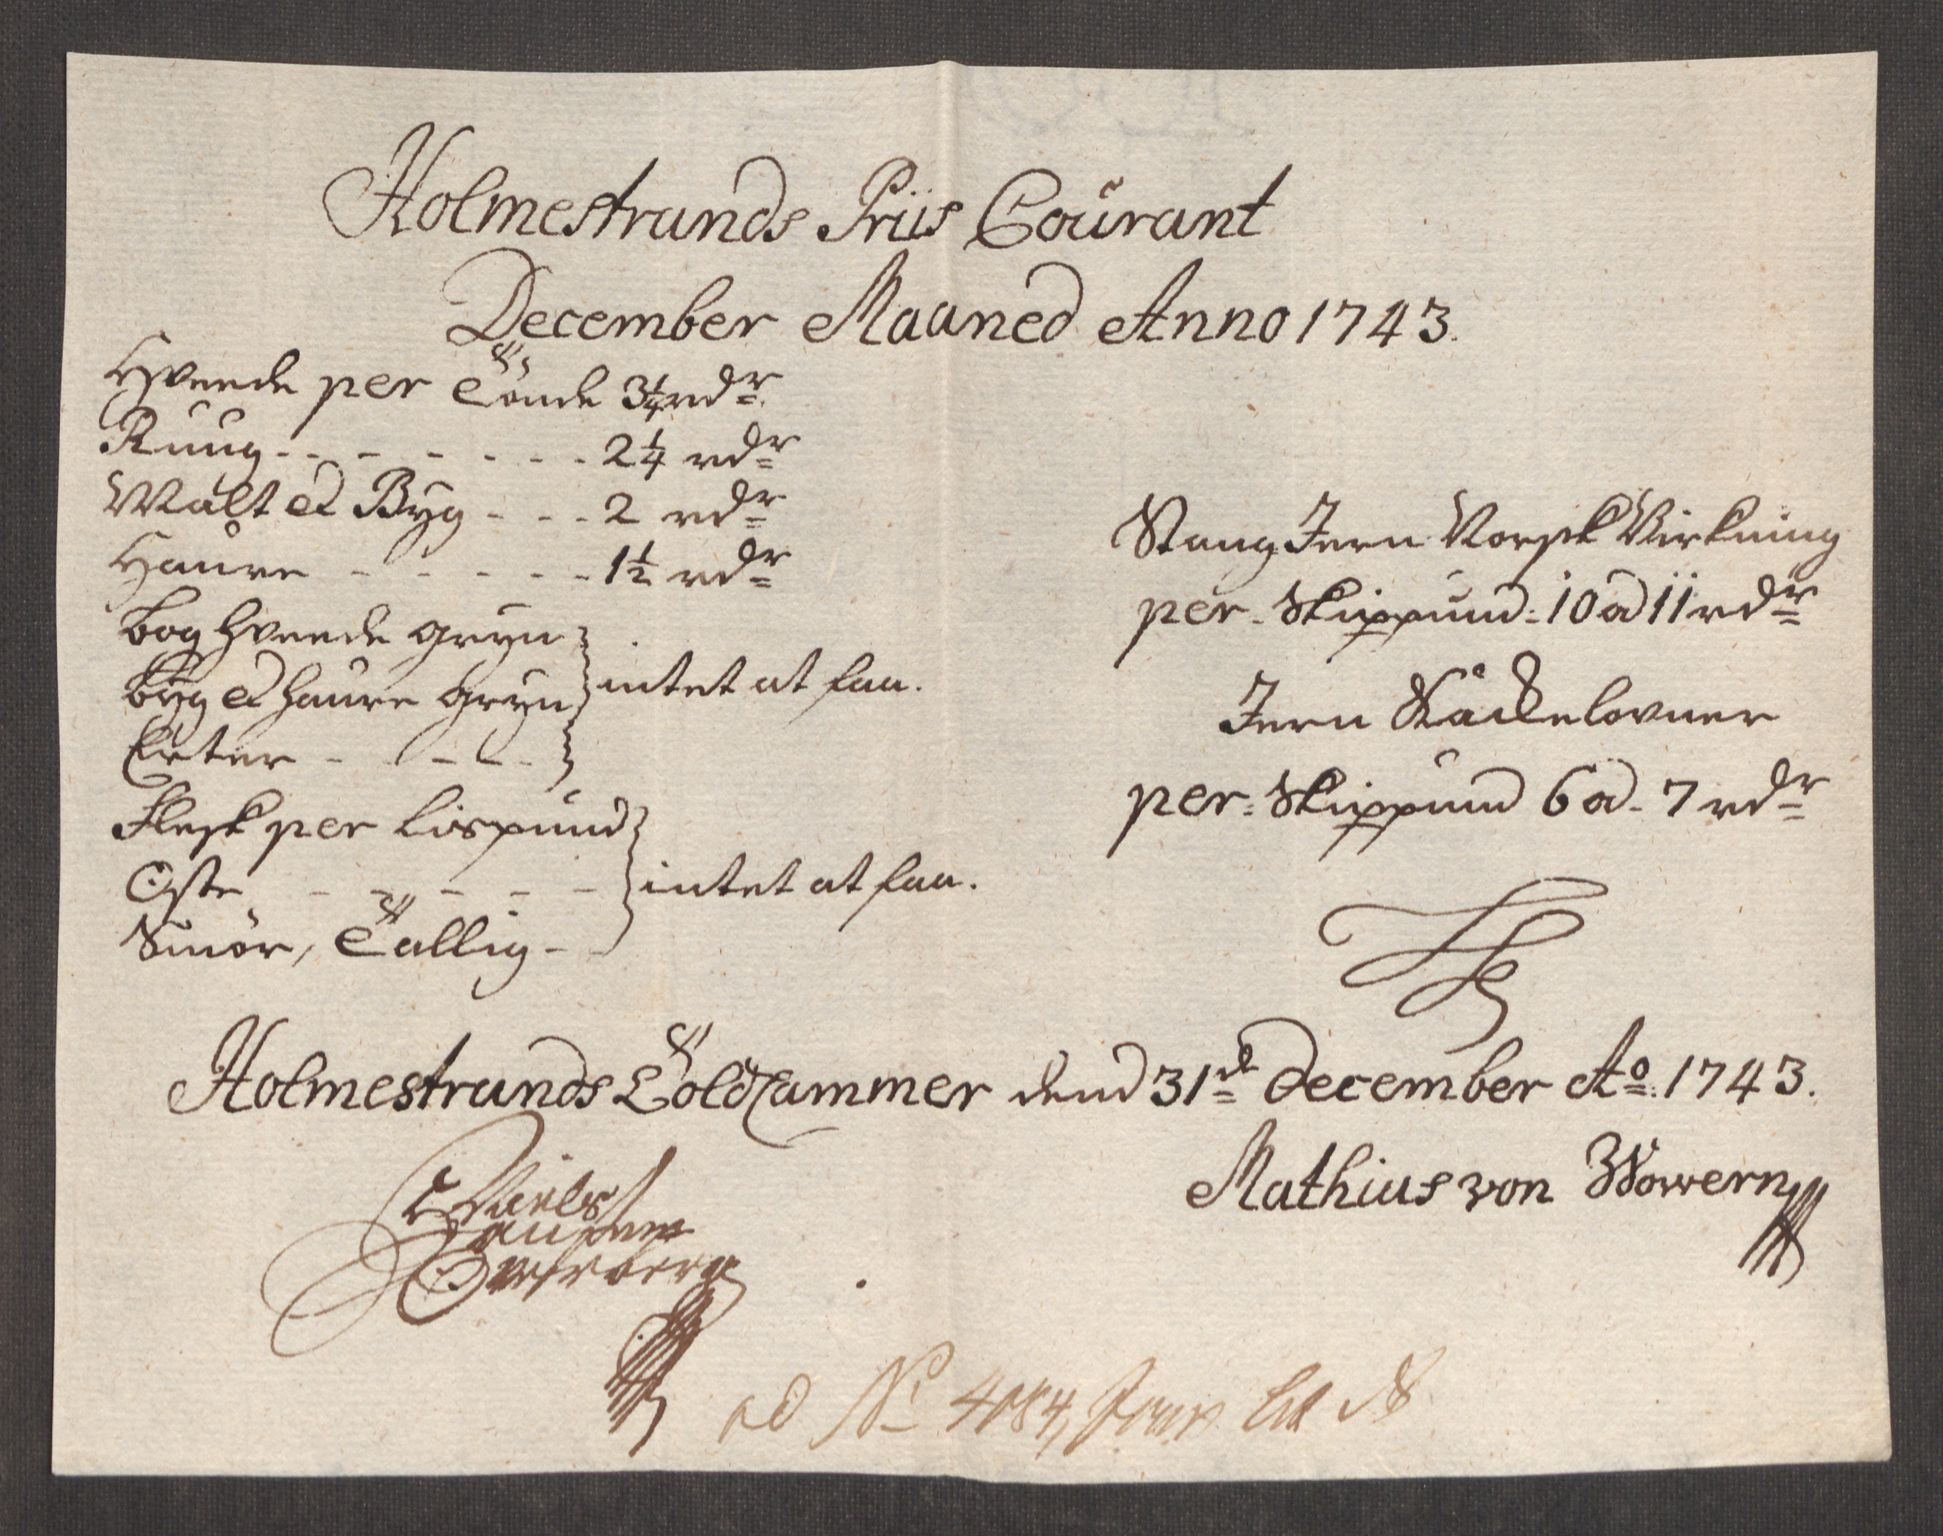 Holmestrands Priis Courant
December Maaned Anno 1743.
Hveede per Tönde 3¼ rdr
Ruug - - - - - - - 2¼ rdr
Malt et Byg - - - 2 rdr
Haure - - - - - 1½ rdr
Boghveede gryn
Byg et haure gryn } intet at faa.
Erter - - - - -
Flesk per Lispund
Oste - - - - - } intet at faa.
Smör, Tallig - -
Stang Jern Norsk Virkning
per. Skippund. 10 a 11 rdr
Jern Kackelovner
per. Skippund 6 a 7 rdr
Holmestrands Toldcammer dend 31de December Ao 1743.
Niels
Mathius von Wowern
ad No 4084, Jour Litt B